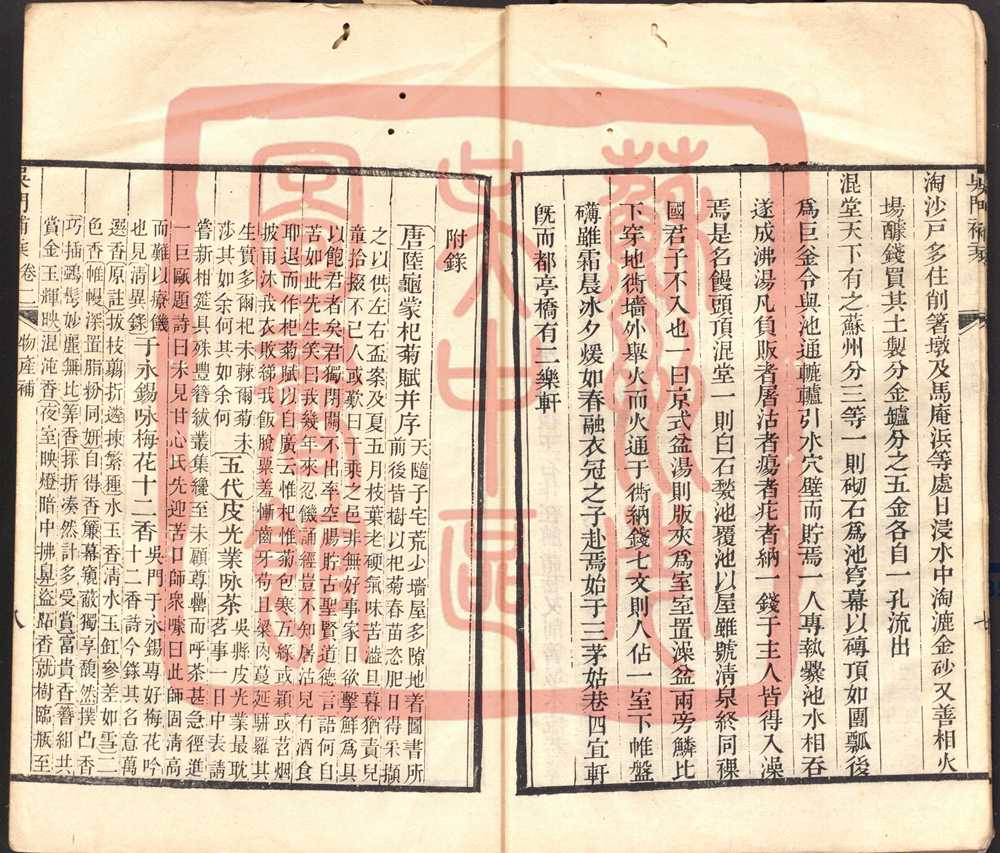 吳門補乘
七
淘沙戸多住削箸墩及馬庵浜等處日浸水中淘漉金砂又善相火
場醵錢買其土製分金鑪分之五金各自一孔流出
混堂天下有之蘇州分三等一則砌石爲池穹幕以磚頂如圍瓢後
爲巨釜令與池通轆轤引水穴壁而貯焉一人專執爨池水相吞
遂成沸湯凡負販者屠沽者瘍者疕者納一錢于主人皆得入澡
焉是名饅頭頂混堂一則白石甃池覆池以屋雖號淸泉終同裸
國君子不入也一曰京式盆湯則版夾爲室室置澡盆兩旁鱗比
下穿地衖墻外舉火而火通于衖納錢七文則人佔一室下帷盤
礴雖霜晨冰夕煖如春融衣冠之子赴焉始于三茅姑巷四宜軒
旣而都亭橋有二樂軒
附錄
唐陸龜蒙杞菊賦并序
天隨子宅荒少墻屋多隙地着圖書所
前後皆樹以杞菊春苗恣肥日得采擷
之以供左右盃案及夏五月枝葉老硬氣味苦澁旦暮猶責兒
童拾掇不已人或歎曰千乘之邑非無好事家日欲擊鮮爲具
以飽君者矣君獨閉關不出率空腸貯古聖賢道德言語何自
苦如此先生笑曰我幾年來忍饑誦經豈不知屠沽兒有酒食
耶退而作杞菊賦以自廣云惟杞惟菊包寒互綠或穎或苕烟
披雨沐我衣敗綈我飯脫粟羞慚齒牙苟且粱肉蔓延駢羅其
生實多爾杞未棘爾菊未
莎其如余何其如余何
五代皮光業咏茶
吳縣皮光業最耽
茗事一日中表請
嘗新相筵具殊豐簪紱叢集纔至未顧尊罍而呼茶甚急徑進
一巨甌題詩曰未見甘心氏先迎苦口師衆噱曰此師固淸高
而難以療饑
也見淸異錄
于永錫咏梅花十二香
吳門于永錫專好梅花吟
十二香詩今錄其名意萬
選香原註拔枝剪折遴揀繁種水玉香淸水玉缸參差如雪二
色香帷幔深置脂粉同妍自得香簾幕窺蔽獨享馥然撲凸香
巧插鵶髩妙麗無比筭香採折湊然計多受賞富貴香簪組共
賞金玉輝映混沌香夜室映燈暗中拂鼻盜跖香就樹臨瓶至
吳門補乘卷二
物產補
八
蘇州市
吳中區
圖書館